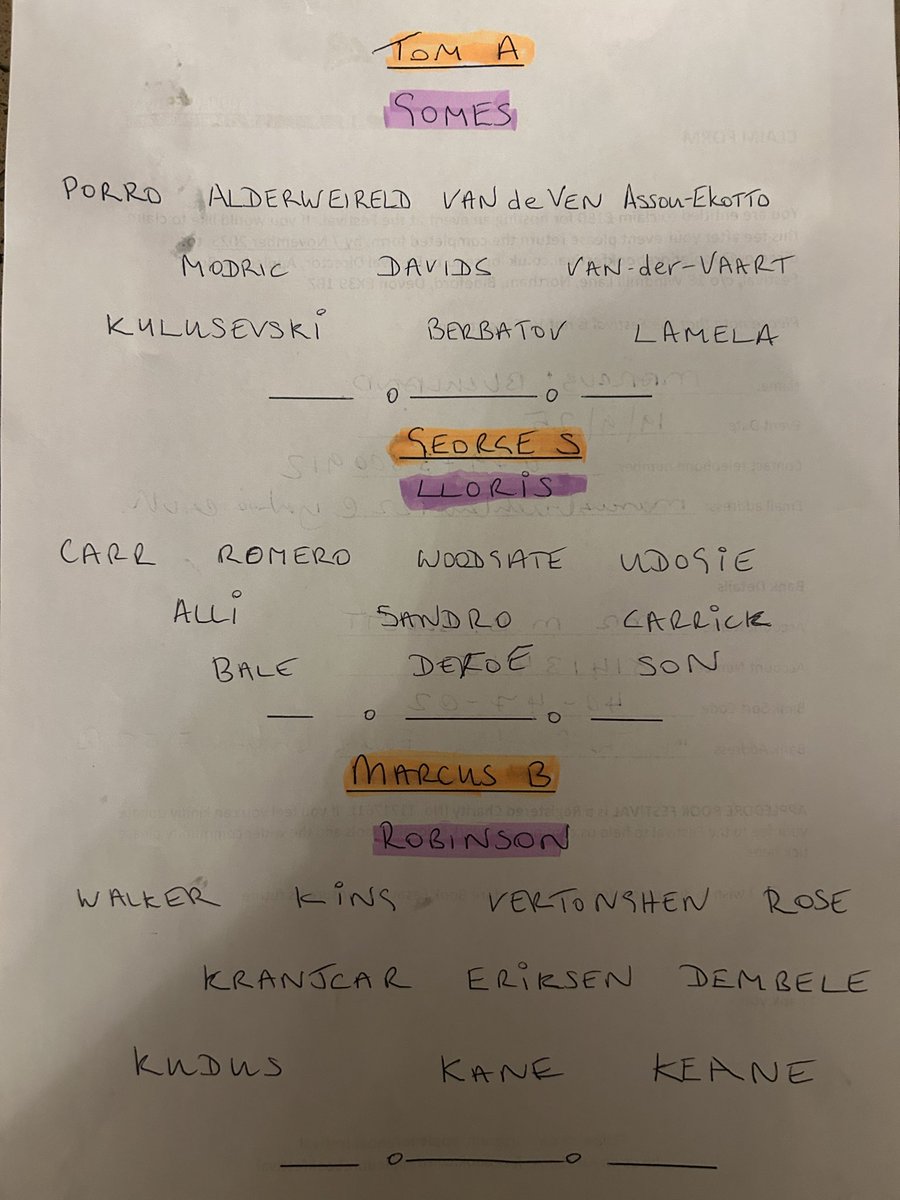 TOM A
GOMES
PORRO ALDERWEIRELD VAN de VEN ASSOU-EKOTTO
MODRIC DAVIDS VAN-der-VAART
KULUSEVSKI BERBATOV LAMELA
GEORGE S
LLORIS
CARR ROMERO WOODGATE UDOGIE
ALLI SANDRO CARRICK
BALE DEFOE SON
MARCUS B
ROBINSON
WALKER KING VERTONGHEN ROSE
KRANJCAR ERIKSEN DEMBELE
KUDUS KANE KEANE